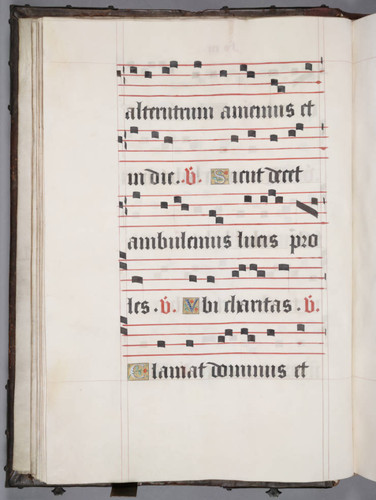 alterutrum amemus et
in die. . V. Sicut decet
ambulemus lucis pro
les. V. Vbi charitas. V.
Clamat dominus et